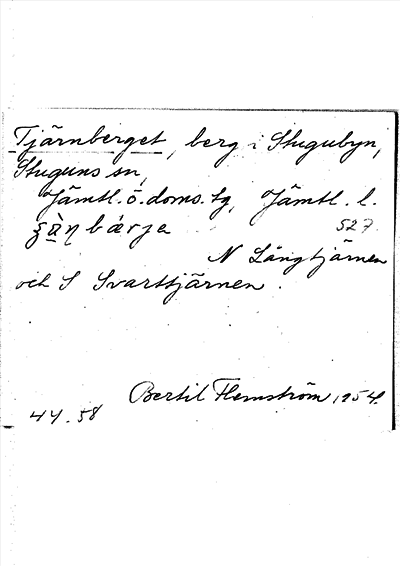 Tjärnberget, berg i Stugubyn,
Stuguns sn,
Jämtl. ö. doms. tg, Jämtl. l.
bárja 527
N Långtjärnen
och S Svarttjärnen.
Bertil Flemström 1954.
44.58